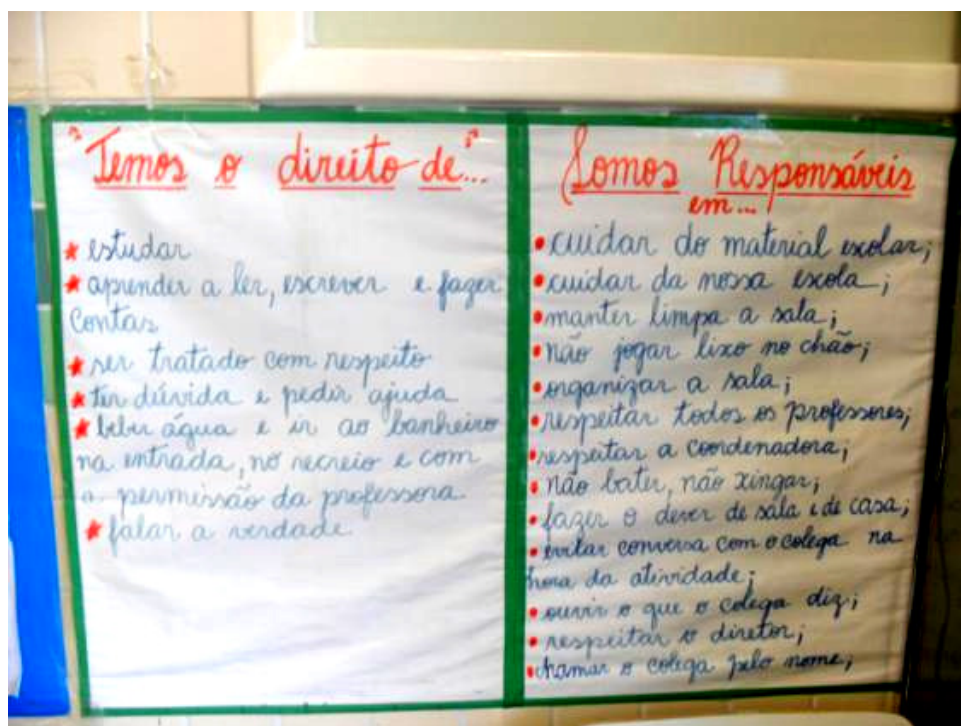 "Temos o direito de..."
* estudar
* aprender a ler, escrever e fazer
contas
* ser tratado com respeito
* ter dúvida e pedir ajuda
* beber água e ir ao banheiro
na entrada, no recreio e com
a permissão da professora
* falar a verdade
Somos Responsáveis
em...
• cuidar do material escolar;
• cuidar da nossa escola;
• manter limpa a sala;
• não jogar lixo no chão;
• organizar a sala;
• respeitar todos os professores;
• respeitar a coordenadora;
• não bater, não xingar;
• fazer o dever de sala e de casa;
• evitar conversa com o colega na
hora da atividade;
• ouvir o que o colega diz;
• respeitar o diretor;
• chamar o colega pelo nome;